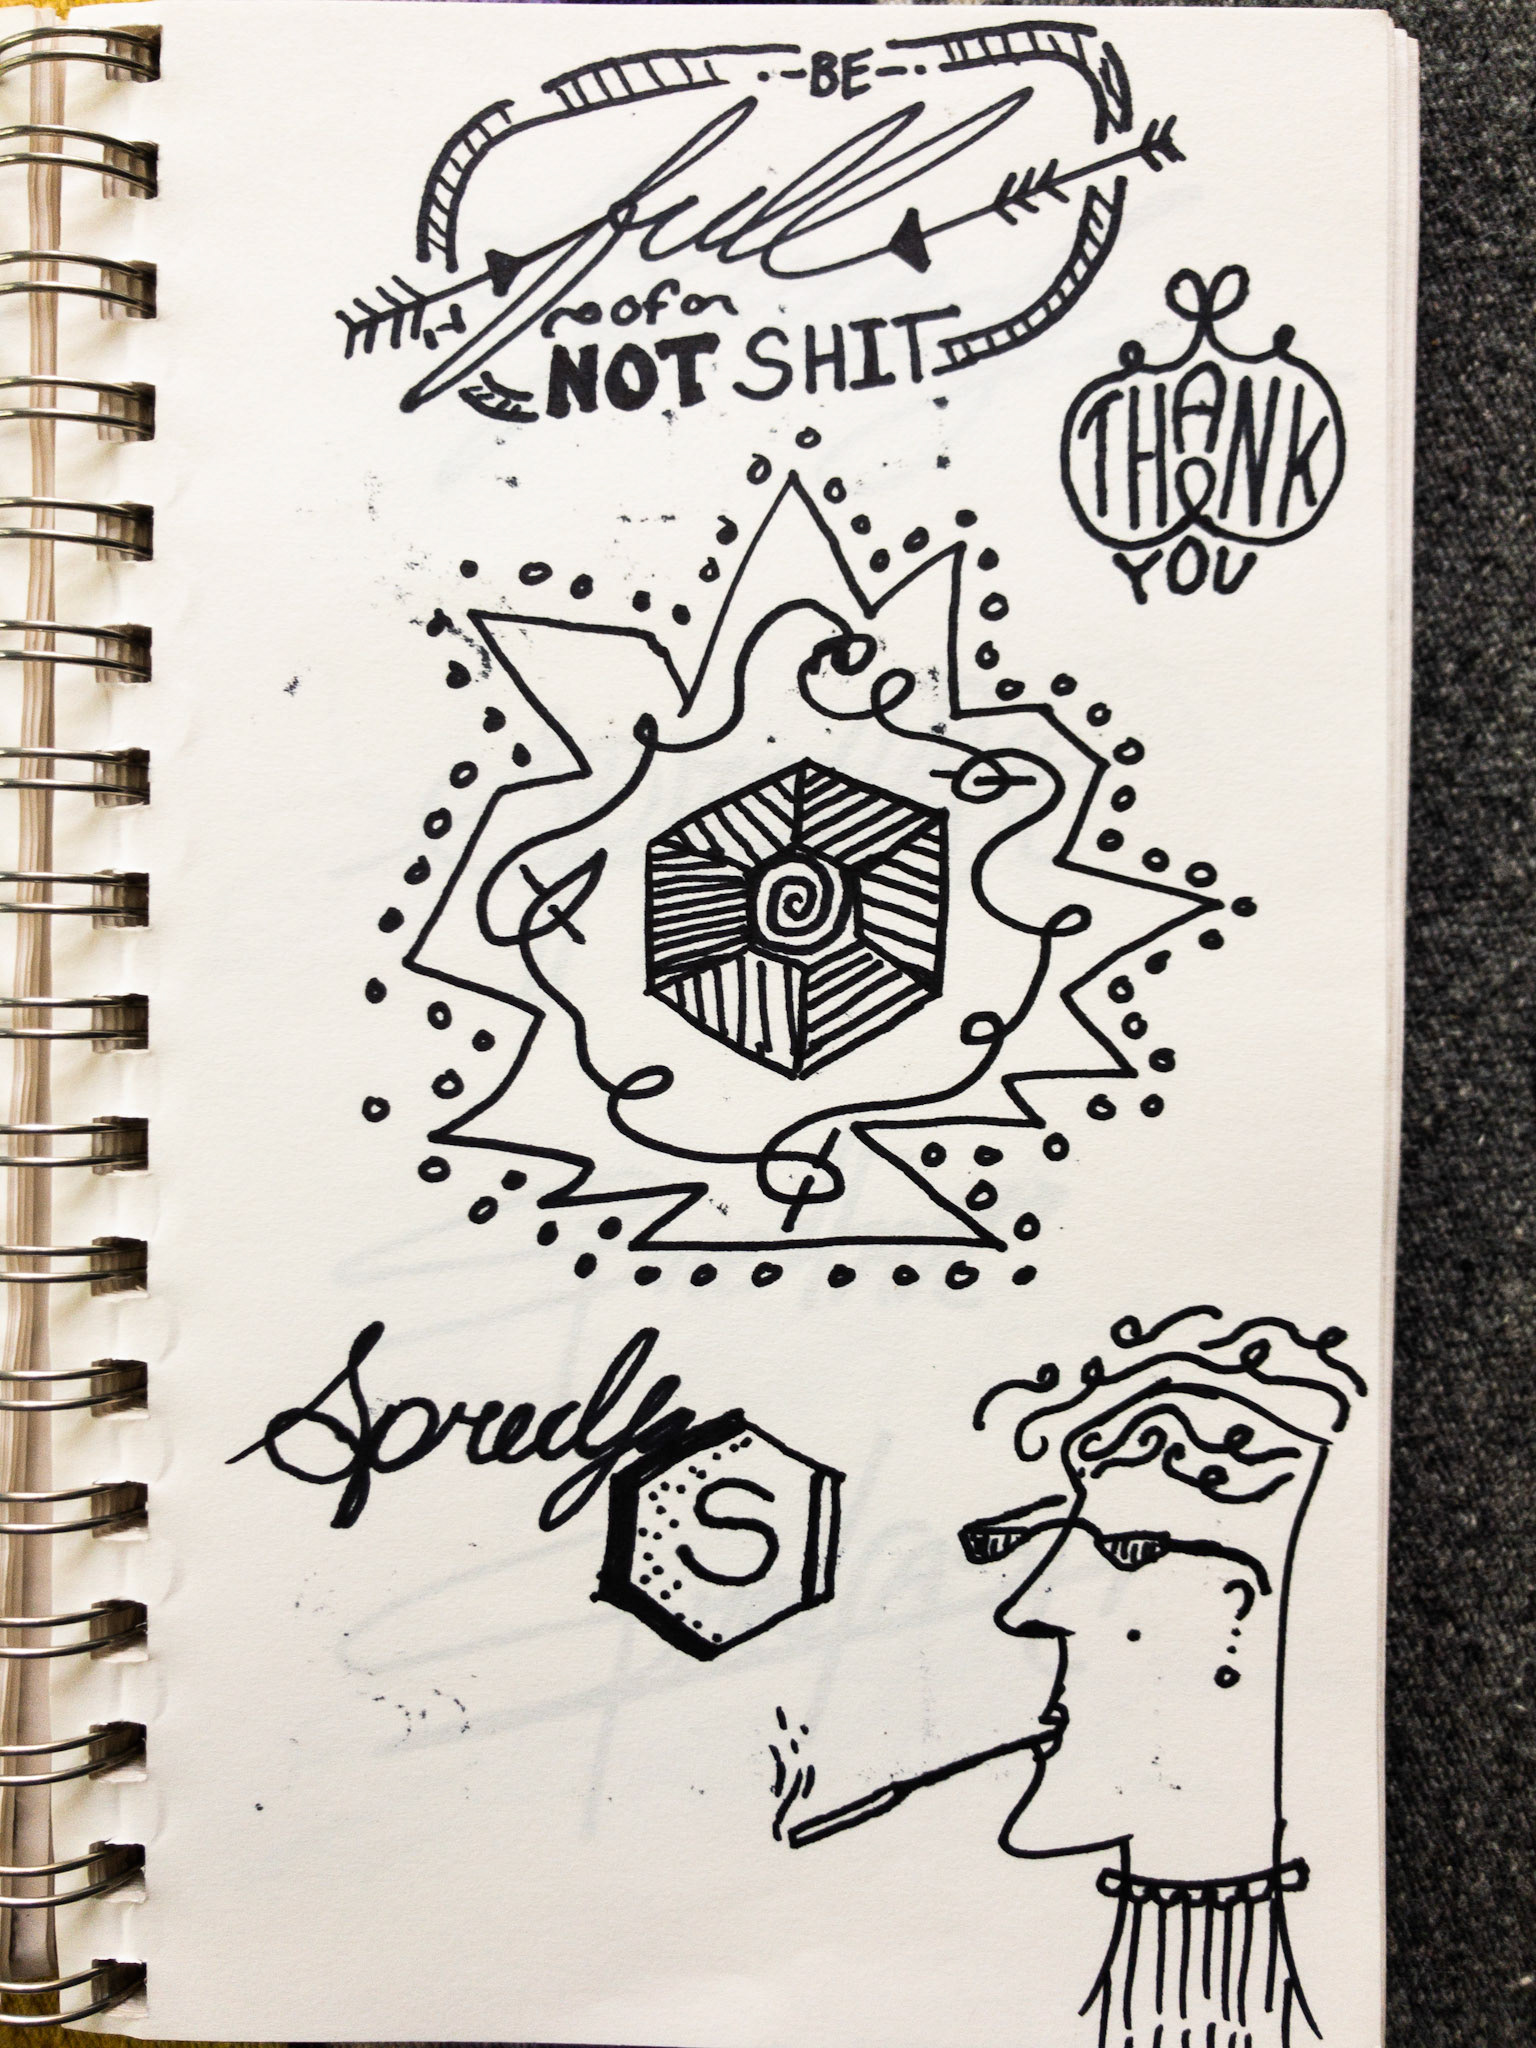 BE
full
of
NOT SHIT
THANK
YOU
Spredly
S